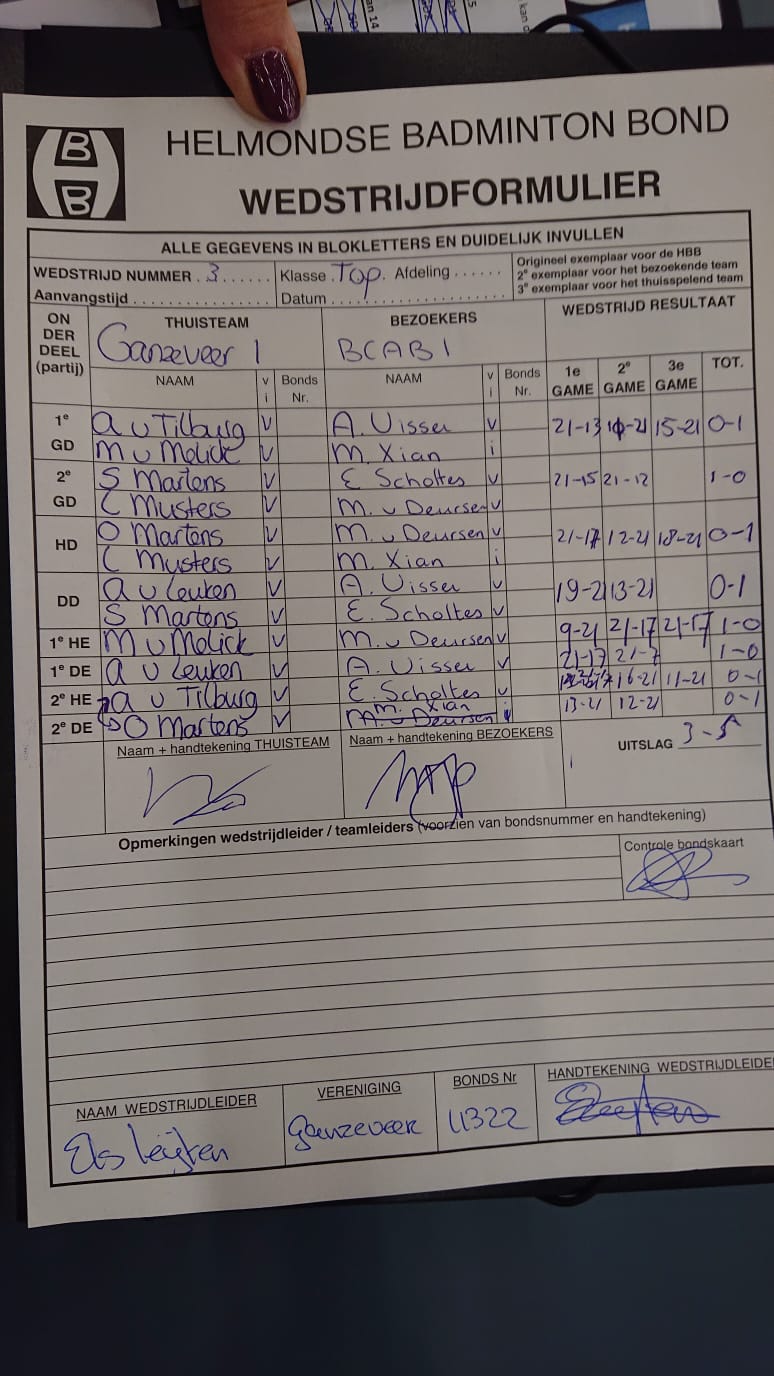 HELMONDSE BADMINTON BOND
WEDSTRIJDFORMULIER
ALLE GEGEVENS IN BLOKLETTERS EN DUIDELIJK INVULLEN
WEDSTRIJD NUMMER . 3 . . . . . . Klasse . Top . Afdeling . . . . . .
Aanvangstijd . . . . . . . . . . . . . . . . Datum . . . . . . . . . . . . . . . . . . . .
Origineel exemplaar voor de HBB
2e exemplaar voor het bezoekende team
3e exemplaar voor het thuisspelend team
ON DER DEEL (partij) THUISTEAM BEZOEKERS WEDSTRIJD RESULTAAT
Ganzeveer 1 BCAB 1
NAAM v i Bonds Nr. NAAM v i Bonds Nr. 1e GAME 2e GAME 3e GAME TOT.
1e GD A v Tilburg V A. Visser v 21-13 -21 15-21 0-1
M v Molick V M. Xian i
2e GD S Martens V E Scholtes v 21-15 21-12 1-0
C Musters V M. v Deursen v
HD O Martens V M. v Deursen v 21-17 12-21 18-21 0-1
C Musters V M. Xian i
DD A v Leuken V A. Visser v 19-21 13-21 0-1
S Martens V E. Scholtes v
1e HE M v Molick V M. v Deursen v 9-21 21-17 21-17 1-0
1e DE A v Leuken V A. Visser v 21-17 21-7 1-0
2e HE A v Tilburg V E. Scholtes v 16-21 11-21 0-1
2e DE O Martens V M. Xian M. v Deursen 13-21 12-21 0-1
Naam + handtekening THUISTEAM Naam + handtekening BEZOEKERS UITSLAG 3-5
Opmerkingen wedstrijdleider / teamleiders (voorzien van bondsnummer en handtekening)
Controle bondskaart
NAAM WEDSTRIJDLEIDER VERENIGING BONDS Nr HANDTEKENING WEDSTRIJDLEIDE
Els Leijten Ganzeveer 11322